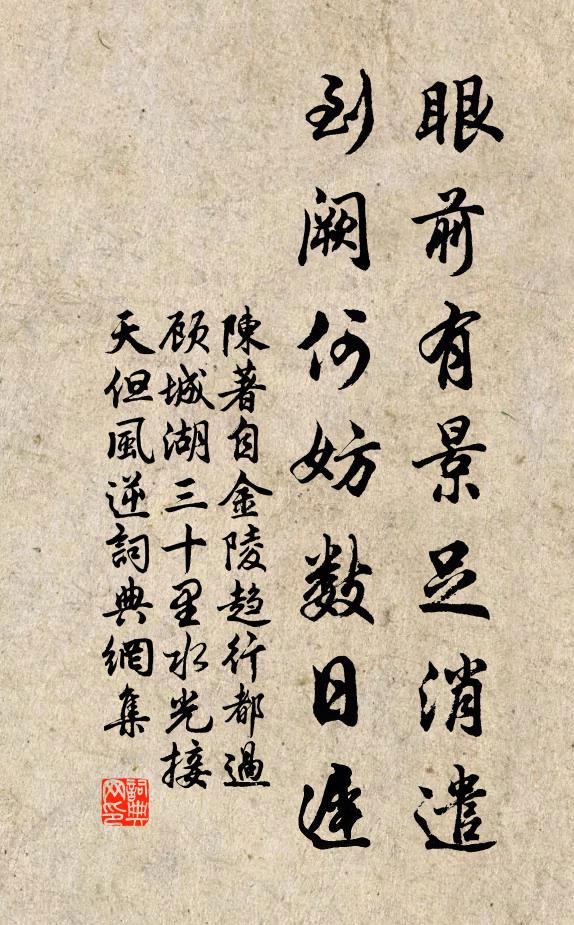 眼前有景足消遣
到阙何妨数日遲
陳著自金陵趋行都過
顾城湖三十里水光接
天但風逆詞典網集
詞典网印